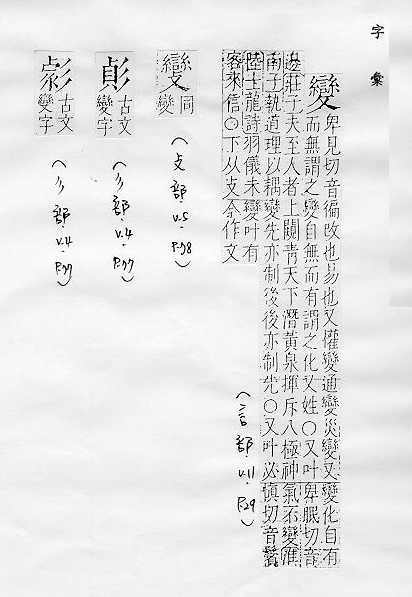 字彙
變 卑見切音徧改也易也又權變通變災變又變化自有
而無謂之變自無而有謂之化又姓○又叶卑眠切音
邊莊子夫至人者上闚青天下潛黃泉揮斥八極神氣不變淮
南子執道理以耦變先亦制後後亦制先○又叶必愼切音鬢
陸士龍詩羽儀未變叶有
客來信○下从攴今作文
(言部·v.11 P.29)
變 同變
(攴部·v.5 P.78)
古文變字
(彡部·v.4 P.77)
古文變字
(彡部·v.4 P.77)